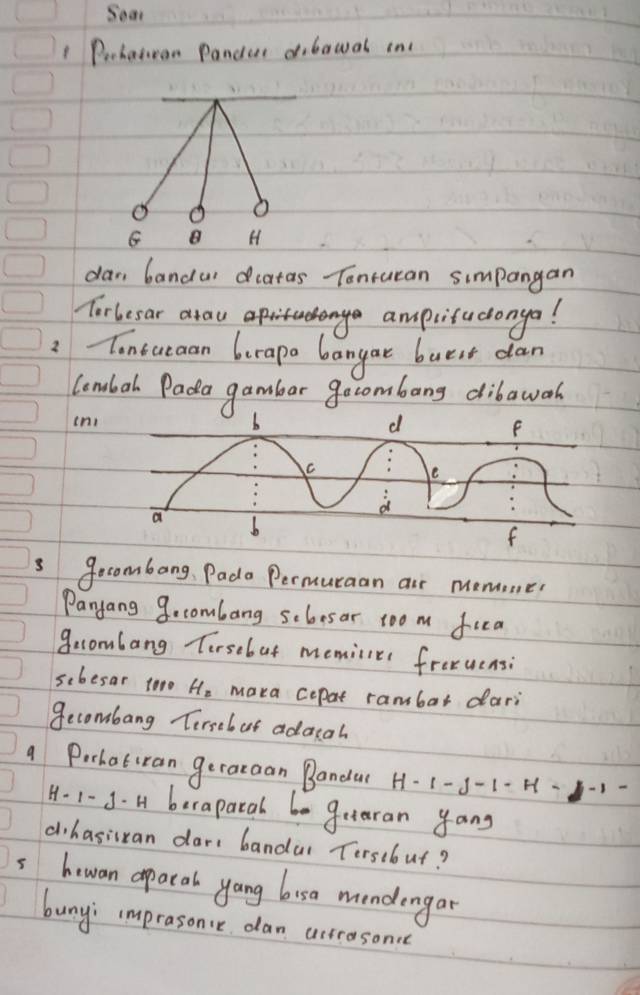 Soal
1 Perhatikan Pandul dibawah ini
G B H
dari bandul diatas Tentukan simpangan
Terbesar atau amplitudonya!
2 Tentukaan berapa banyak bukit dan
Lembah Pada gambar gelombang dibawah
ini
b d f
c e
a b d f
3 gelombang Pada Permukaan air memiliki
Panjang gelombang sebesar 100 m jika
gelombang Tersebut memiliki frekuensi
sebesar 1000 Hz maka cepat rambat dari
gelombang Tersebut adalah
4 Perhatikan gerakaan Bandul H-I-J-I-H-J-I-
H-I-J-H berapakah getaran yang
dihasilkan dari bandul Tersebut?
5 hewan apakah yang bisa mendengar
bunyi imprasonik dan ultrasonik